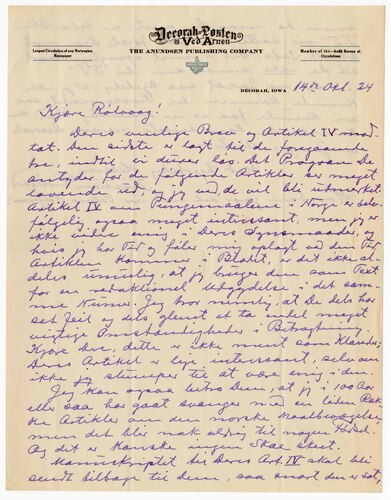 Decorah-Posten
& Ved Arnen
Largest Circulation of any Norwegian
Newspaper
THE ANUNDSEN PUBLISHING COMPANY
Member of the Audit Bureau of
Circulations
DECORAH, IOWA 14de Okt. 24
Kjære Rölvaag!
Deres venlige Brev og Artikel IV mod-
tat. Den sidste er lagt til de foregaaende
tre, indtil vi duver løs. Det Program De
antyder for de følgende Artikler ser meget
lovende ud, og jeg ved, de vil bli utmerket
Artikel IV om i Norge er selv-
følgelig ogsaa meget interessant, men jeg er
ikke videre enig i Deres Synsmaader, og
hvis jeg har Tid og føler mig oplagt ved den Tid
Artiklen kommer i Bladet, er det ikke al-
deles umulig, at jeg bruger den som Text
for en redaktionel Utgydelse i det sam-
me Numer. Jeg tror nemlig, at De dels har
set feil og dels glemt at ta endel meget
vigtige Omstændigheter i Betragtning.
Kjære Dem, dette er ikke ment som Klander;
Deres Artikel er lige interessant, selv om
ikke jeg til at være enig i den.
Jeg kan ogsaa betro Dem, at jeg i 100 Aar
eller saa har gaat svanger med en liten Ræk-
ke Artikler om den norske Maalbevægelse
men det blir nok aldrig til noget Hødsel.
Og det er kanske ingen Skae skeet.
Manuskriptet til Deres Art. IV skal bli
sendt tilbage til Dem, saa snart den er sat,